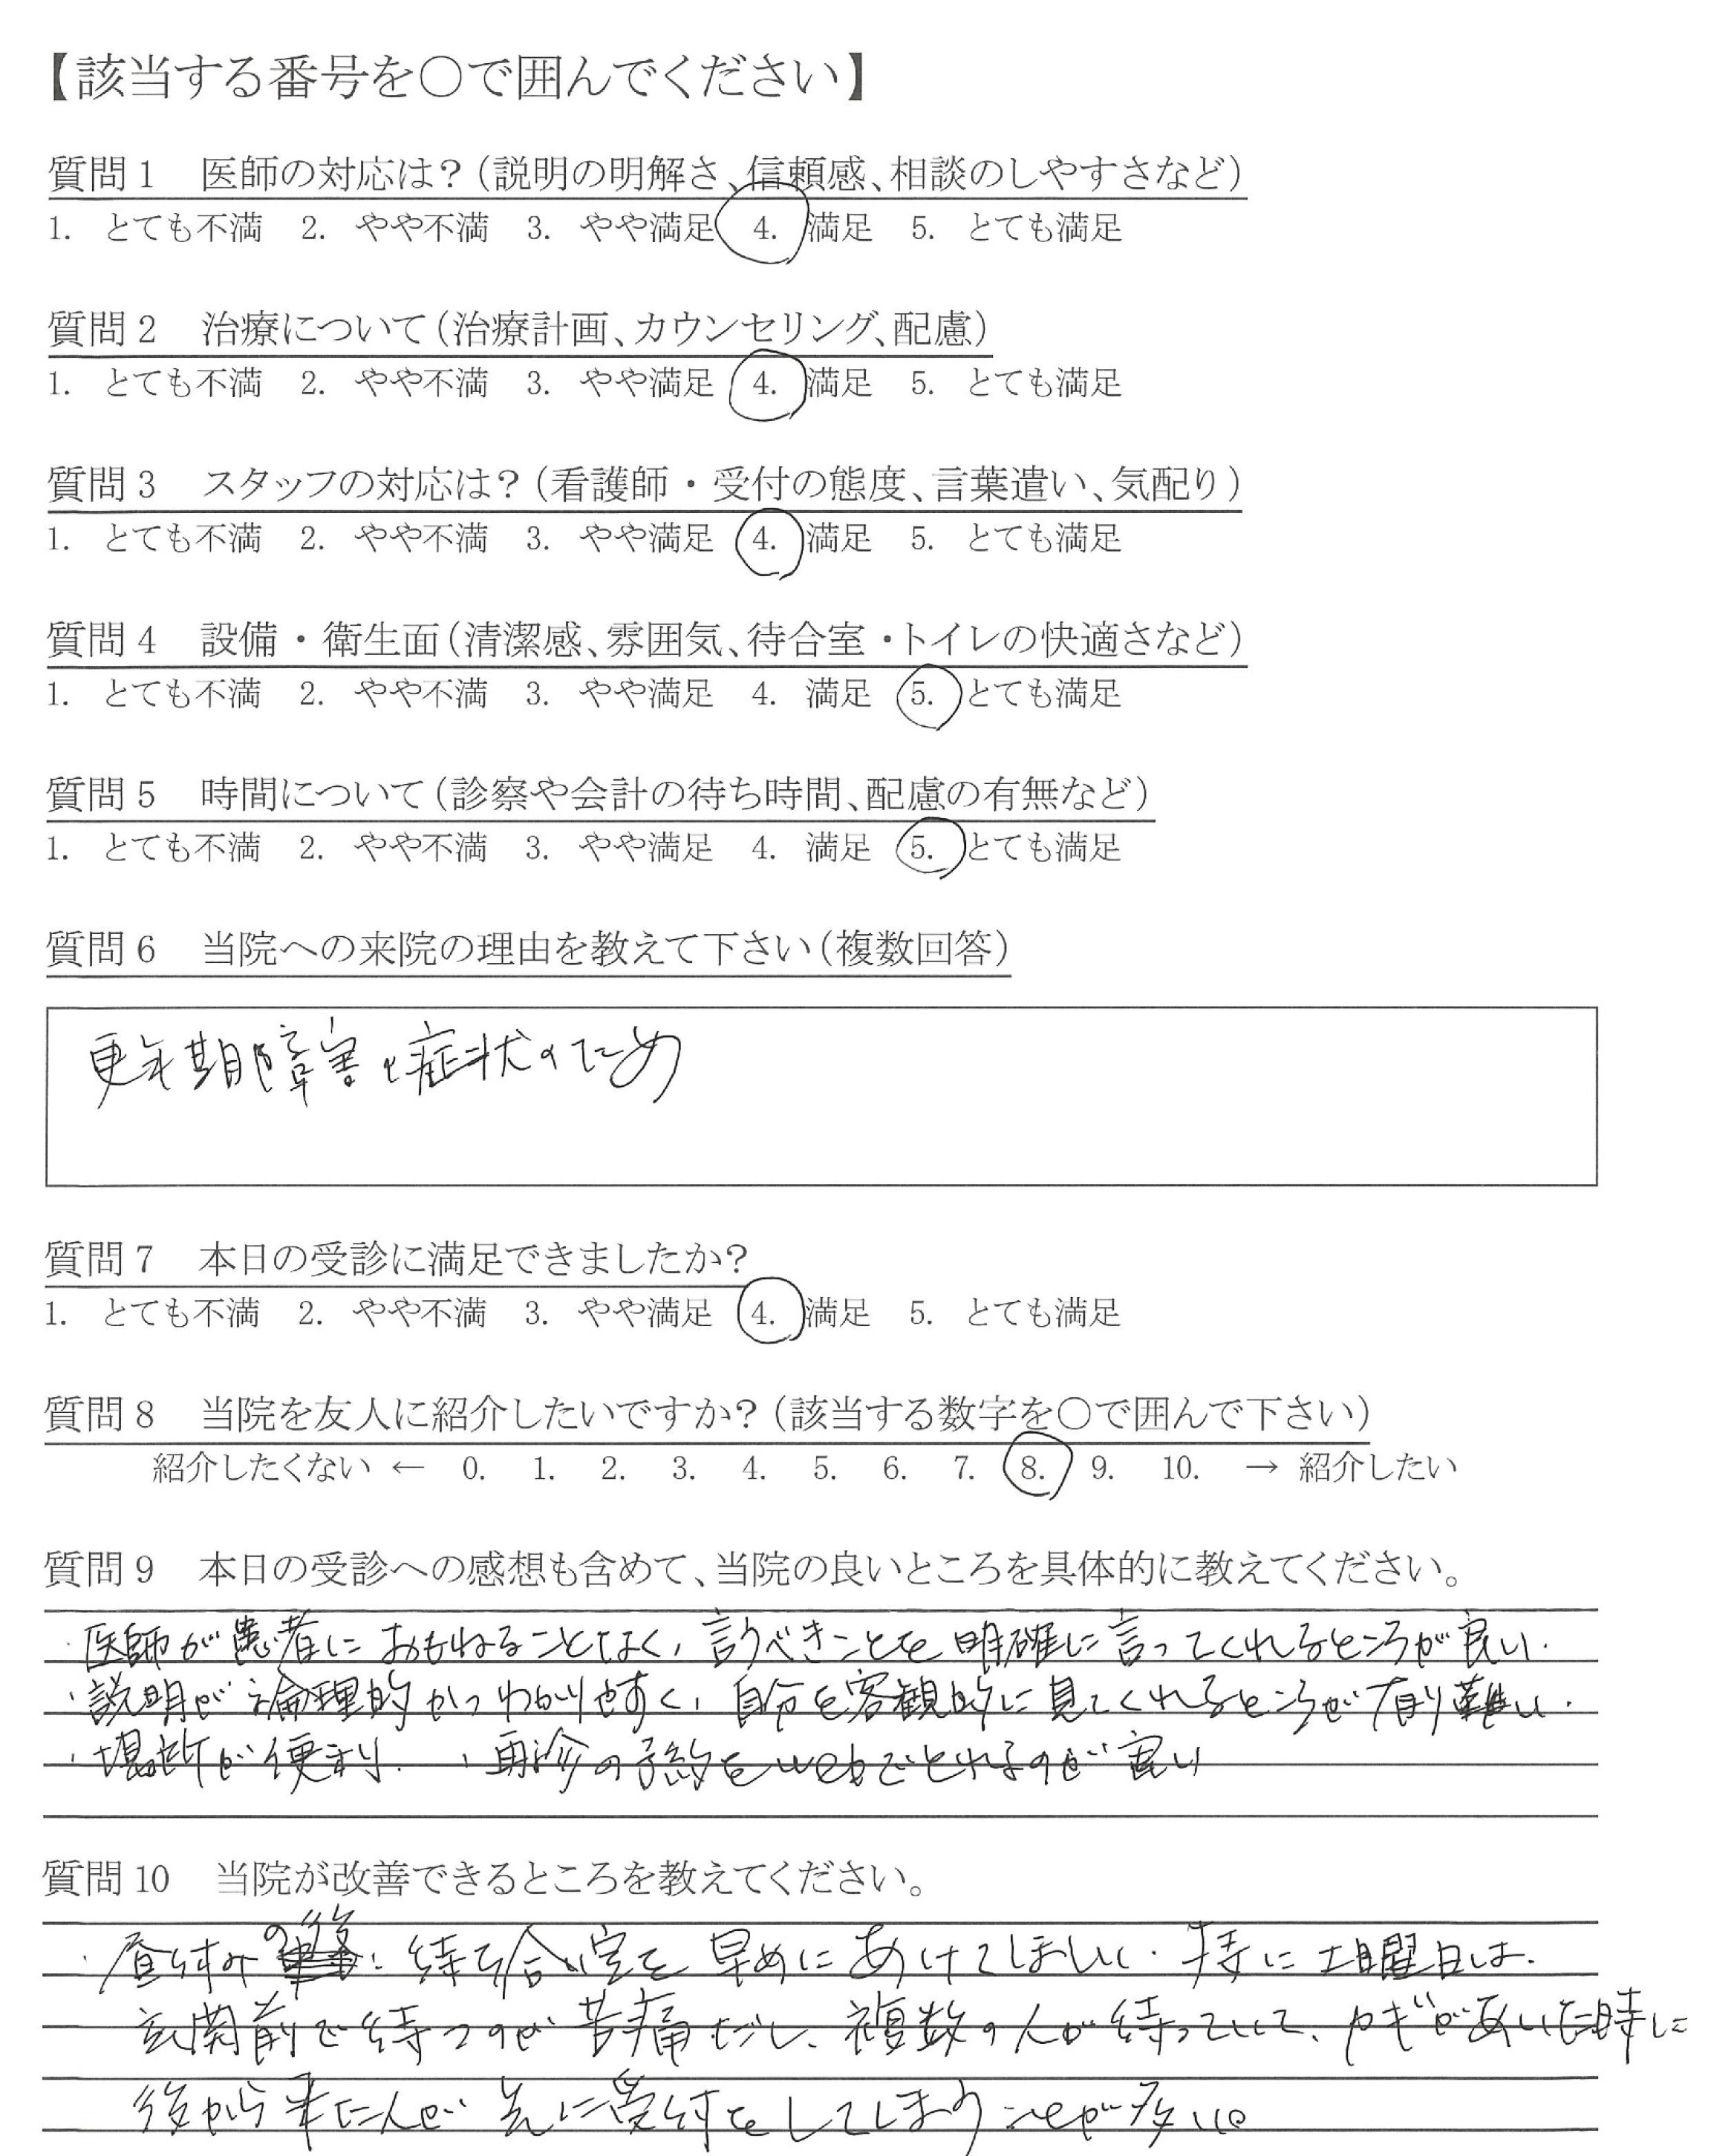 【該当する番号を〇で囲んでください】
質問1 医師の対応は?(説明の明解さ、信頼感、相談のしやすさなど)
1. とても不満 2. やや不満 3. やや満足 4. 満足 5. とても満足
質問2 治療について(治療計画、カウンセリング、配慮)
1. とても不満 2. やや不満 3. やや満足 4. 満足 5. とても満足
質問3 スタッフの対応は?(看護師・受付の態度、言葉遣い、気配り)
1. とても不満 2. やや不満 3. やや満足 4. 満足 5. とても満足
質問4 設備・衛生面(清潔感、雰囲気、待合室・トイレの快適さなど)
1. とても不満 2. やや不満 3. やや満足 4. 満足 5. とても満足
質問5 時間について(診察や会計の待ち時間、配慮の有無など)
1. とても不満 2. やや不満 3. やや満足 4. 満足 5. とても満足
質問6 当院への来院の理由を教えて下さい(複数回答)
更年期障害の症状のため
質問7 本日の受診に満足できましたか?
1. とても不満 2. やや不満 3. やや満足 4. 満足 5. とても満足
質問8 当院を友人に紹介したいですか?(該当する数字を〇で囲んで下さい)
紹介したくない ← 0. 1. 2. 3. 4. 5. 6. 7. 8. 9. 10. → 紹介したい
質問9 本日の受診への感想も含めて、当院の良いところを具体的に教えてください。
・医師が患者におもねることなく、言うべきことを明確に言ってくれるところが良い.
・説明が論理的かつわかりやすく、自分を客観的に見てくれるところが有り難い.
・場所が便利. ・再診の予約をwebでとれるのが良い
質問10 当院が改善できるところを教えてください。
・昼休みの後、待ち合い室を早めにあけてほしい. 特に土曜日は.
玄関前で待つのが苦痛だし、複数の人が待っていて、カギがあいた時に
後から来た人が先に受付をしてしまうことが多い。